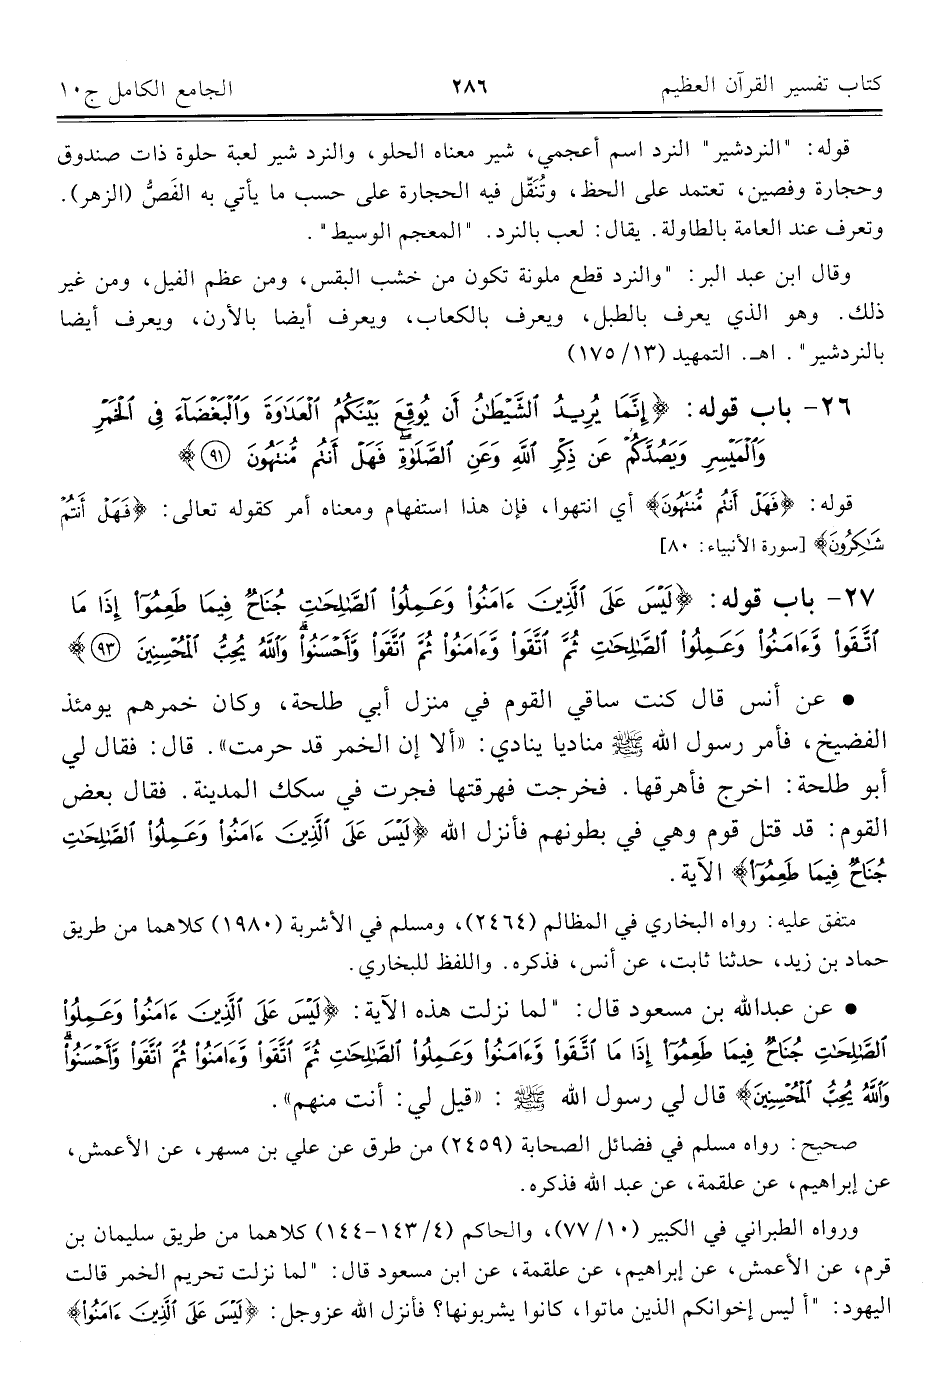 كتاب تفسير القرآن العظيم ٢٨٦ الجامع الكامل ج١٠
قوله: "النردشير" النرد اسم أعجمي، شير معناه الحلو، والنرد شير لعبة حلوة ذات صندوق
وحجارة وفصين، تعتمد على الحظ، وتُنَقّل فيه الحجارة على حسب ما يأتي به الفَصُّ (الزهر).
وتعرف عند العامة بالطاولة. يقال: لعب بالنرد. "المعجم الوسيط".
وقال ابن عبد البر: "والنرد قطع ملونة تكون من خشب البقس، ومن عظم الفيل، ومن غير
ذلك. وهو الذي يعرف بالطبل، ويعرف بالكعاب، ويعرف أيضا بالأرن، ويعرف أيضا
بالنردشير". اهـ. التمهيد (١٣/ ١٧٥)
٢٦- باب قوله: ﴿إِنَّمَا يُرِيدُ ٱلشَّيْطَٰنُ أَن يُوقِعَ بَيْنَكُمُ ٱلْعَدَٰوَةَ وَٱلْبَغْضَآءَ فِى ٱلْخَمْرِ
وَٱلْمَيْسِرِ وَيَصُدَّكُمْ عَن ذِكْرِ ٱللَّهِ وَعَنِ ٱلصَّلَوٰةِ ۖ فَهَلْ أَنتُم مُّنتَهُونَ ٩١﴾
قوله: ﴿فَهَلْ أَنتُم مُّنتَهُونَ﴾ أي انتهوا، فإن هذا استفهام ومعناه أمر كقوله تعالى: ﴿فَهَلْ أَنتُمْ
شَٰكِرُونَ﴾ [سورة الأنبياء: ٨٠]
٢٧- باب قوله: ﴿لَيْسَ عَلَى ٱلَّذِينَ ءَامَنُوا۟ وَعَمِلُوا۟ ٱلصَّٰلِحَٰتِ جُنَاحٌ فِيمَا طَعِمُوٓا۟ إِذَا مَا
ٱتَّقَوا۟ وَّءَامَنُوا۟ وَعَمِلُوا۟ ٱلصَّٰلِحَٰتِ ثُمَّ ٱتَّقَوا۟ وَّءَامَنُوا۟ ثُمَّ ٱتَّقَوا۟ وَّأَحْسَنُوا۟ ۗ وَٱللَّهُ يُحِبُّ ٱلْمُحْسِنِينَ ٩٣﴾
• عن أنس قال كنت ساقي القوم في منزل أبي طلحة، وكان خمرهم يومئذ
الفضيخ، فأمر رسول الله ﷺ مناديا ينادي: «ألا إن الخمر قد حرمت». قال: فقال لي
أبو طلحة: اخرج فأهرقها. فخرجت فهرقتها فجرت في سكك المدينة. فقال بعض
القوم: قد قتل قوم وهي في بطونهم فأنزل الله ﴿لَيْسَ عَلَى ٱلَّذِينَ ءَامَنُوا۟ وَعَمِلُوا۟ ٱلصَّٰلِحَٰتِ
جُنَاحٌ فِيمَا طَعِمُوٓا۟﴾ الآية.
متفق عليه: رواه البخاري في المظالم (٢٤٦٤)، ومسلم في الأشربة (١٩٨٠) كلاهما من طريق
حماد بن زيد، حدثنا ثابت، عن أنس، فذكره. واللفظ للبخاري.
• عن عبدالله بن مسعود قال: "لما نزلت هذه الآية: ﴿لَيْسَ عَلَى ٱلَّذِينَ ءَامَنُوا۟ وَعَمِلُوا۟
ٱلصَّٰلِحَٰتِ جُنَاحٌ فِيمَا طَعِمُوٓا۟ إِذَا مَا ٱتَّقَوا۟ وَّءَامَنُوا۟ وَعَمِلُوا۟ ٱلصَّٰلِحَٰتِ ثُمَّ ٱتَّقَوا۟ وَّءَامَنُوا۟ ثُمَّ ٱتَّقَوا۟ وَّأَحْسَنُوا۟ ۗ
وَٱللَّهُ يُحِبُّ ٱلْمُحْسِنِينَ﴾ قال لي رسول الله ﷺ: «قيل لي: أنت منهم».
صحيح: رواه مسلم في فضائل الصحابة (٢٤٥٩) من طرق عن علي بن مسهر، عن الأعمش،
عن إبراهيم، عن علقمة، عن عبد الله فذكره.
ورواه الطبراني في الكبير (١٠/ ٧٧)، والحاكم (٤/ ١٤٣-١٤٤) كلاهما من طريق سليمان بن
قرم، عن الأعمش، عن إبراهيم، عن علقمة، عن ابن مسعود قال: "لما نزلت تحريم الخمر قالت
اليهود: "أ ليس إخوانكم الذين ماتوا، كانوا يشربونها؟ فأنزل الله عزوجل: ﴿لَيْسَ عَلَى ٱلَّذِينَ ءَامَنُوا۟﴾